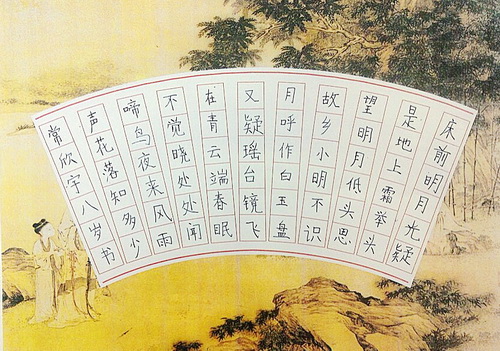 床前明月光疑
是地上霜举头
望明月低头思
故乡小明不识
月呼作白玉盘
又疑瑶台镜飞
在青云端春眠
不觉晓处处闻
啼鸟夜来风雨
声花落知多少
常欣宇八岁书